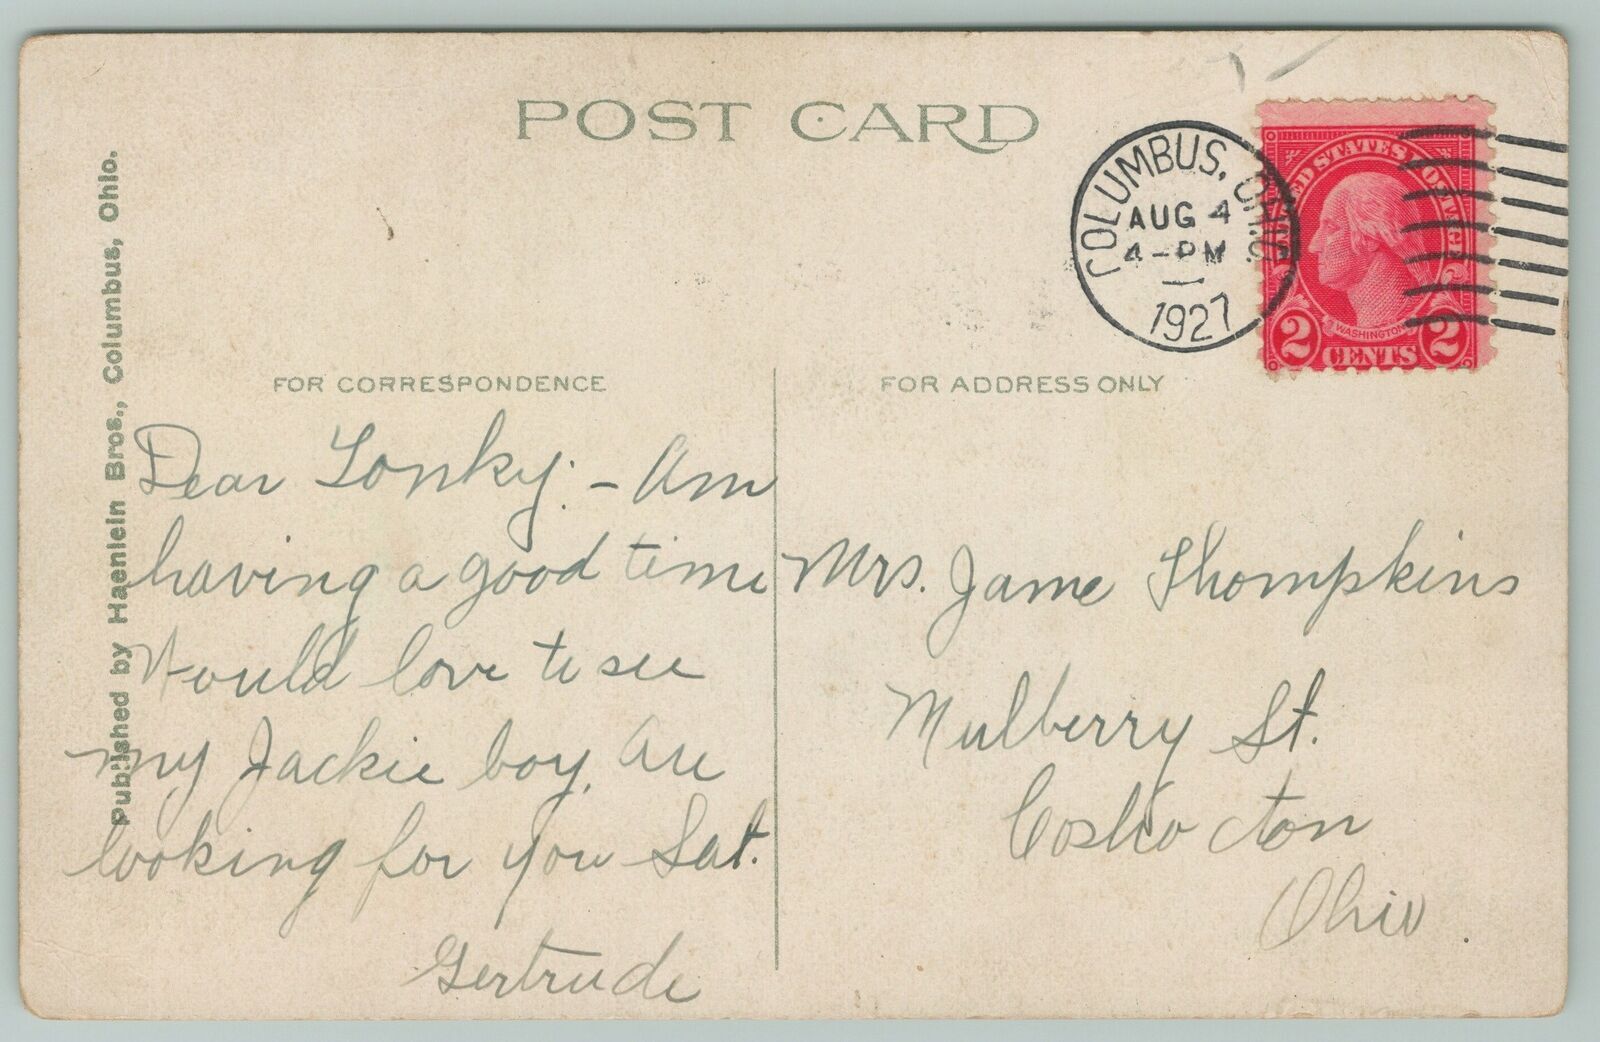 POST CARD
COLUMBUS, OHIO
AUG 4
4-PM
1927
UNITED STATES POSTAGE
WASHINGTON
2 CENTS 2
Published by Haenlein Bros., Columbus, Ohio.
FOR CORRESPONDENCE
FOR ADDRESS ONLY
Dear Lonky: - Am
having a good time
Would love to see
my Jackie boy, are
looking for you Sat.
Gertrude
Mrs. Jame Thompkins
Mulberry St.
Coshocton
Ohio.